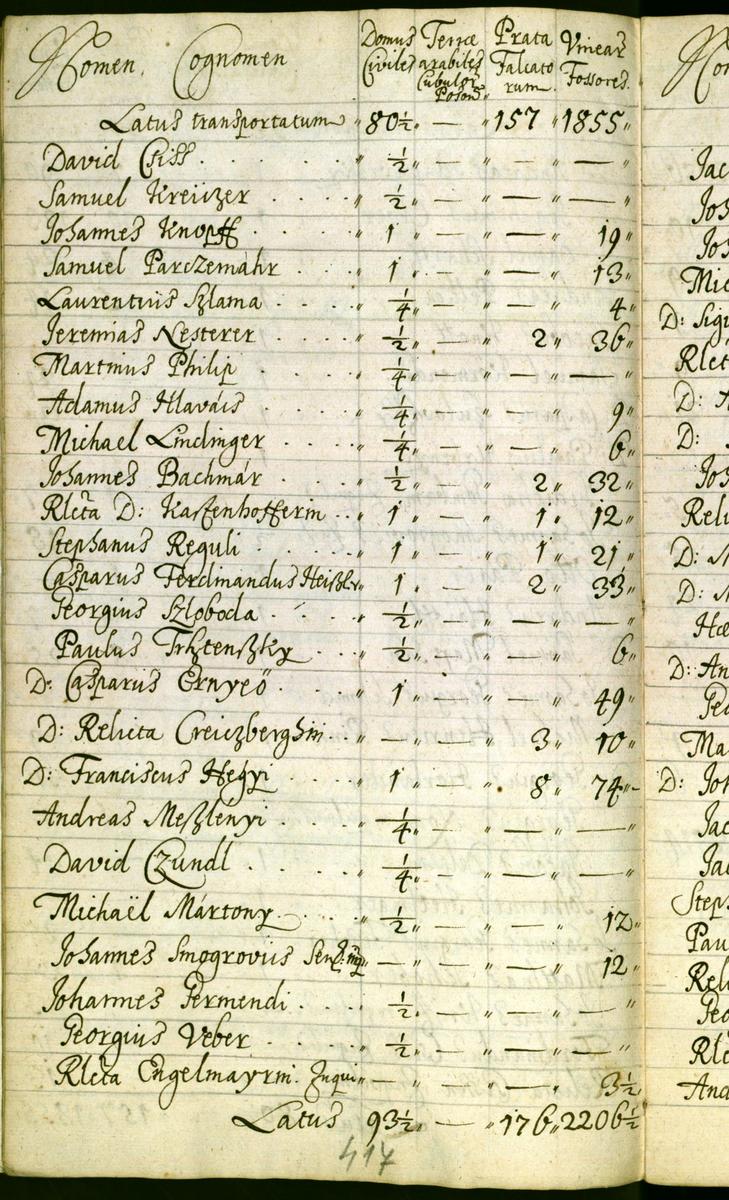 Nomen, Cognomen Domus Civiles Terræ arabiles Cubulor. Poson. Prata Falcatorum Vinear. Fossores
Latus transportatum 80½ — 157 1855
David Csiss ½ — — —
Samuel Kreiczer ½ — — —
Johannes Knopff 1 — — 19
Samuel Parczemahr 1 — — 13
Laurentius Szlama ¼ — — 4
Jeremias Nesterer ½ — 2 36
Martinus Philip ¼ — — —
Adamus Hlaváis ¼ — — 9
Michael Lindinger ¼ — — 6
Johannes Bachmár ½ — 2 32
Rlcta D: Kastenhofferin 1 — 1 12
Stephanus Reguli 1 — 1 21
Casparus Ferdinandus Heißler 1 — 2 33
Georgius Szloboda ½ — — —
Paulus ½ — — 6
D: Casparus Ernyeö 1 — — 49
D: Relicta Creiczberghin — — 3 10
D: Franciscus Hegyi 1 — 8 74
Andreas Meßlenyi ¼ — — —
David Czundl ¼ — — —
Michaël Mártony ½ — — 12
Johannes Smogrovius — — — 12
Johannes Permendi ½ — — —
Georgius Veber ½ — — —
Rlcta Engelmayrin. Inqui — — — 3½
Latus 93½ — 176 2206½
417
Jac
Joh
Joh
Mic
D: Sig
Rlct
D:
D:
Joh
Reli
D:
D:
Hæ
D: An
Geo
Ma
D: Joh
Jac
Jac
Step
Pau
Reli
Geo
Rlc
And